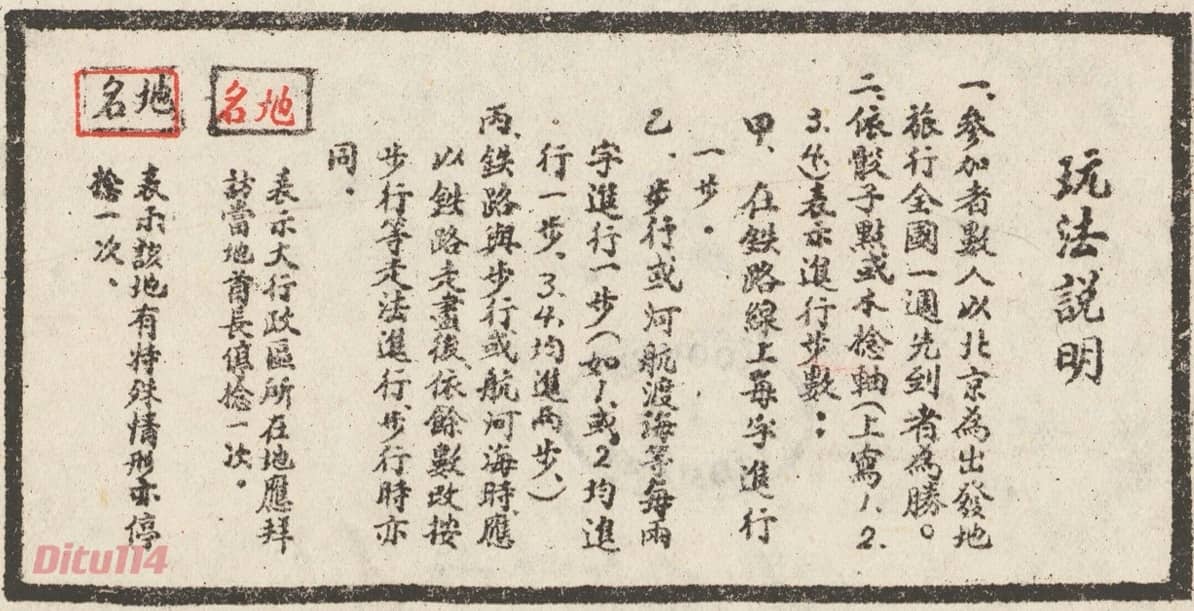 玩法説明
一、參加者數人以北京為出發地
旅行全國一週先到者為勝。
二、依骰子點或木捻軸(上寫1.2.
3.4)表示進行步數：
甲、在鉄路線上每字進行
一步．
乙．步行或河航渡海等每兩
字進行一步(如1.或2均進
行一步、3.4.均進兩步、)
丙、鉄路與步行或航河海時應
以鉄路走盡後、依餘數改按
步行等走法進行、步行時亦
同．
地名
表示大行政區所在地應拜
訪當地首長停捻一次。
地名
表示該地有特殊情形亦停
捻一次、
Ditu114